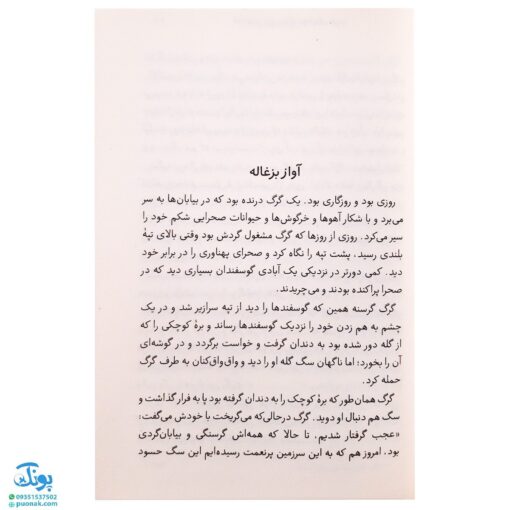 آواز بزغاله
روزی بود و روزگاری بود. یک گرگ درنده بود که در بیابان‌ها به سر
می‌برد و با شکار آهوها و خرگوش‌ها و حیوانات صحرایی شکم خود را
سیر می‌کرد. روزی از روزها که گرگ مشغول گردش بود وقتی بالای تپهٔ
بلندی رسید، پشت تپه را نگاه کرد و صحرای پهناوری را در برابر خود
دید. کمی دورتر در نزدیکی یک آبادی گوسفندان بسیاری دید که در
صحرا پراکنده بودند و می‌چریدند.
گرگ گرسنه همین که گوسفندها را دید از تپه سرازیر شد و در یک
چشم به هم زدن خود را نزدیک گوسفندها رساند و برهٔ کوچکی را که
از گله دور شده بود به دندان گرفت و خواست برگردد و در گوشه‌ای
آن را بخورد؛ اما ناگهان سگ گله او را دید و واق‌واق‌کنان به طرف گرگ
حمله کرد.
گرگ همان‌طور که برهٔ کوچک را به دندان گرفته بود پا به فرار گذاشت و
سگ هم دنبال او دوید. گرگ درحالی‌که می‌گریخت با خودش می‌گفت:
«عجب گرفتار شدیم. تا حالا که همه‌اش گرسنگی و بیابان‌گردی
بود. امروز هم که به این سرزمین پرنعمت رسیده‌ایم این سگ حسود
پونک
09351537502
puonak.com